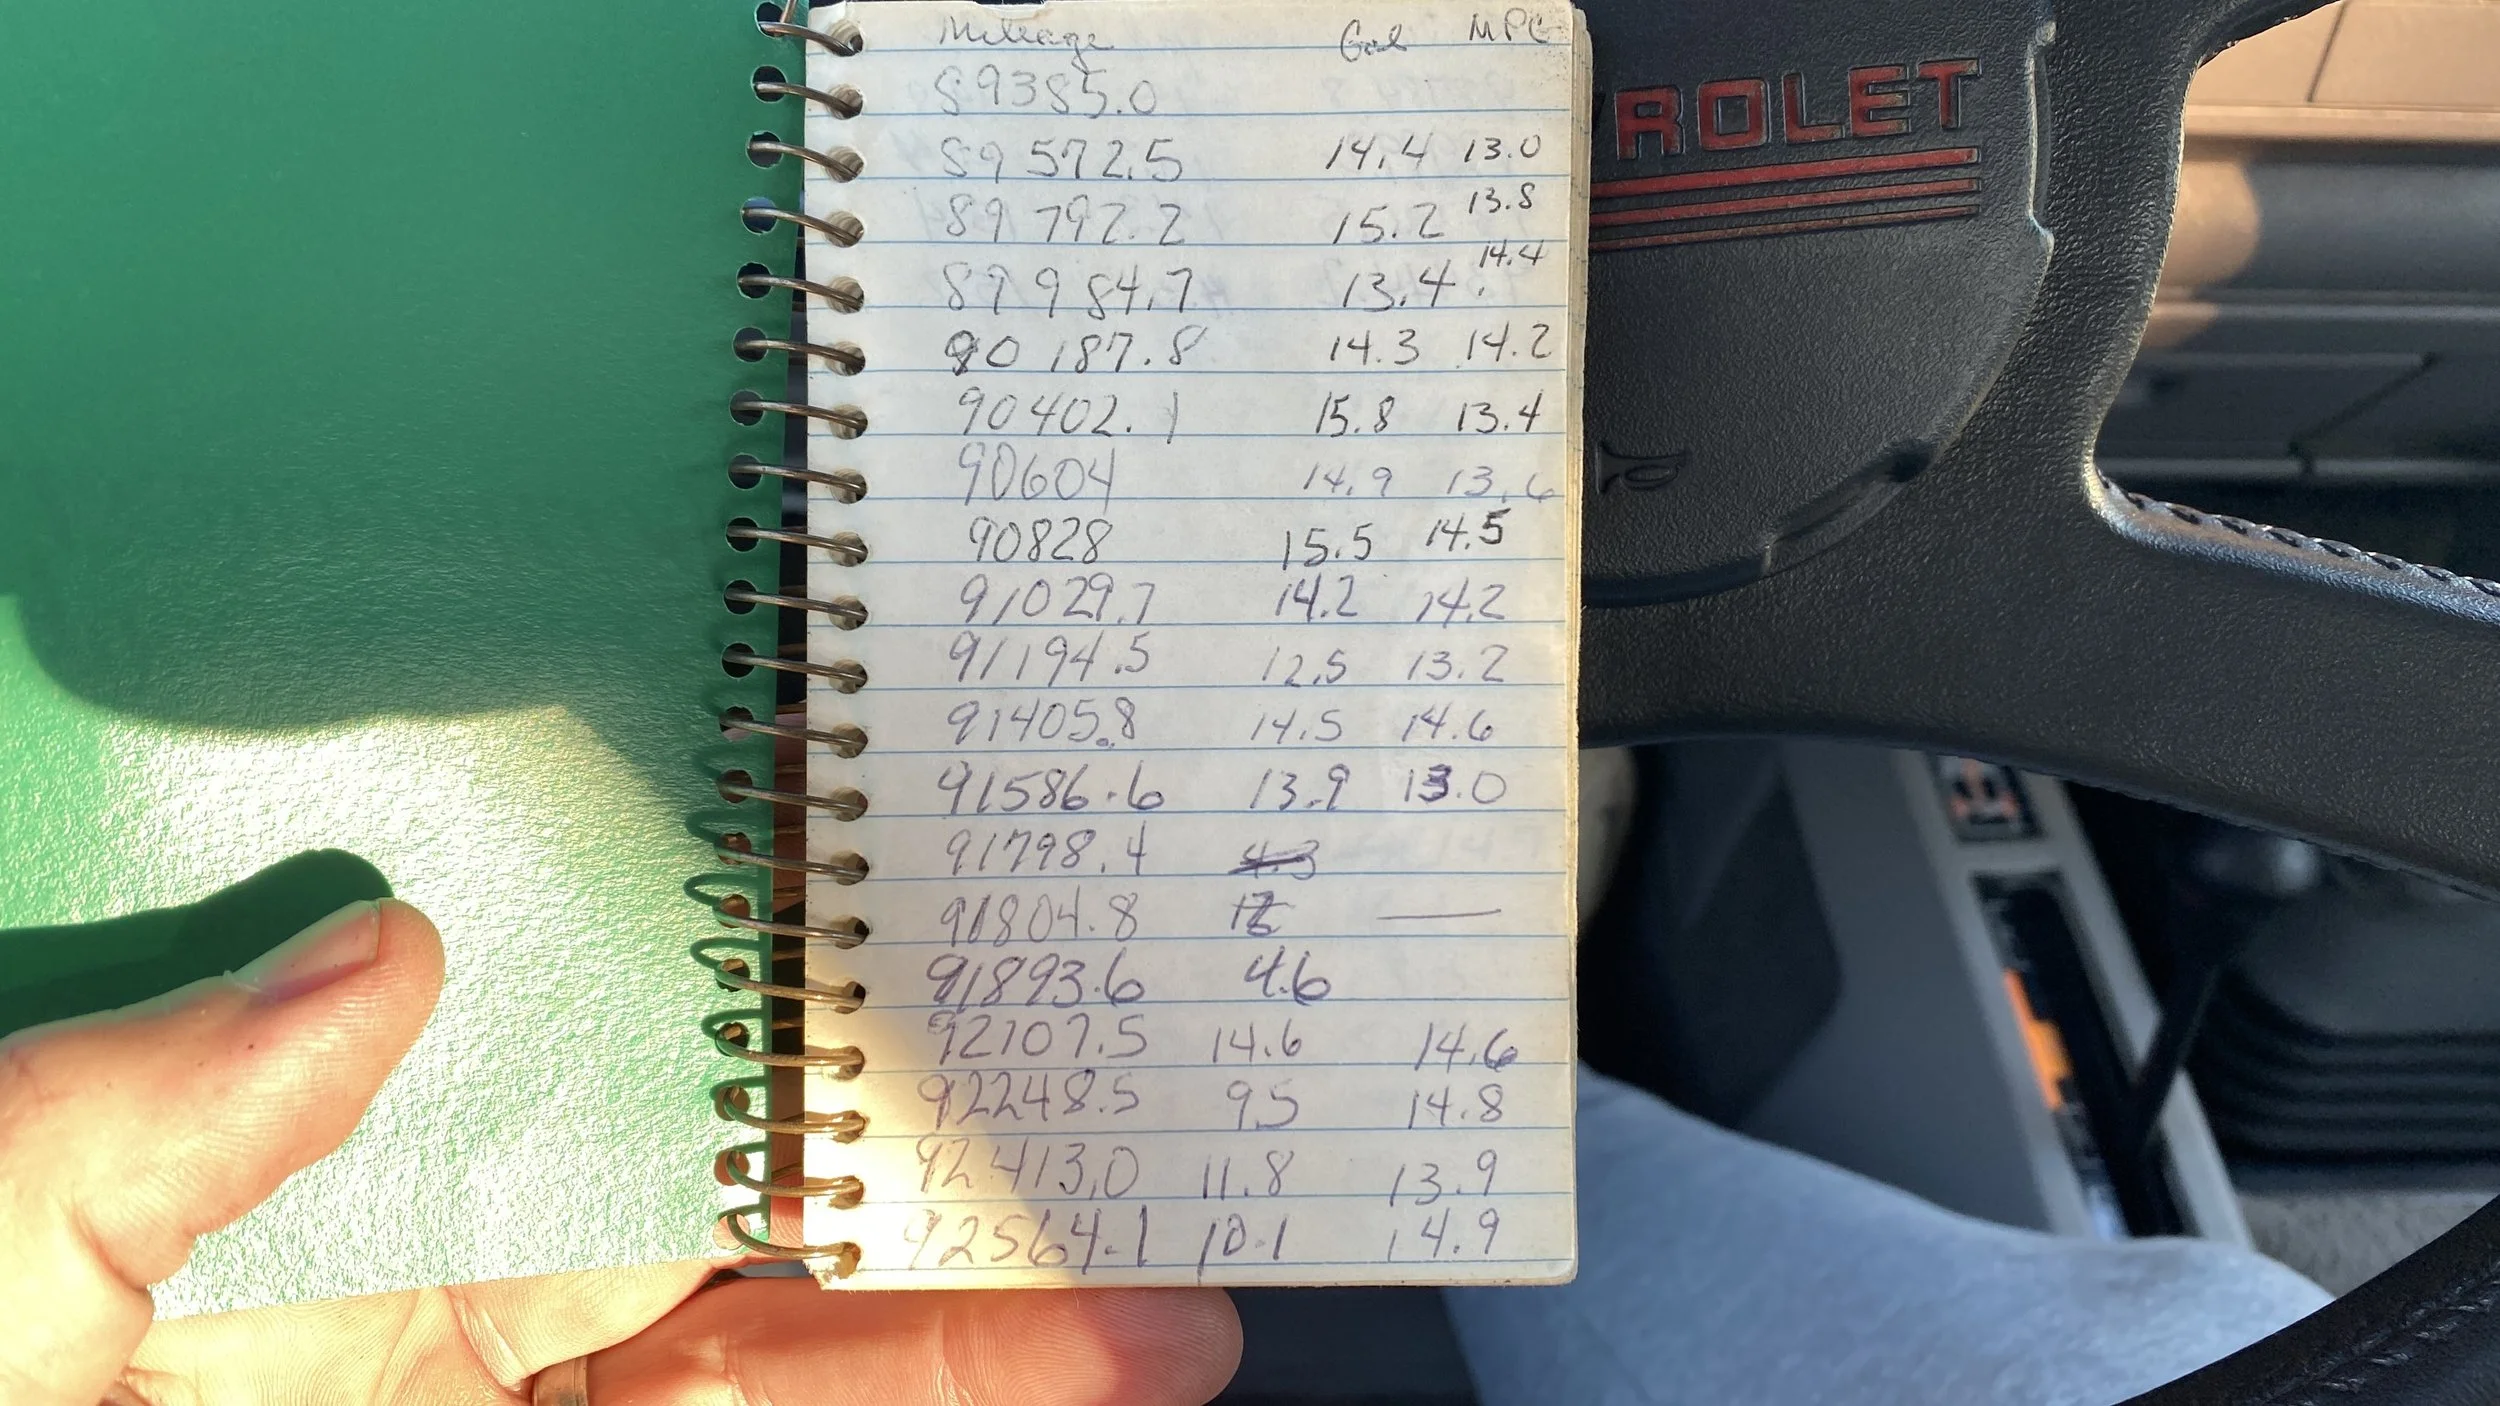 Mileage Gal MPG
89385.0
89572.5 14.4 13.0
89792.2 15.2 13.8
89984.7 13.4 14.4
90187.8 14.3 14.2
90402.1 15.8 13.4
90604 14.9 13.6
90828 15.5 14.5
91029.7 14.2 14.2
91194.5 12.5 13.2
91405.8 14.5 14.6
91586.6 13.9 13.0
91798.4 4.3
91804.8 —
91893.6 4.6
92107.5 14.6 14.6
92248.5 9.5 14.8
92413.0 11.8 13.9
92564.1 10.1 14.9
ROLET